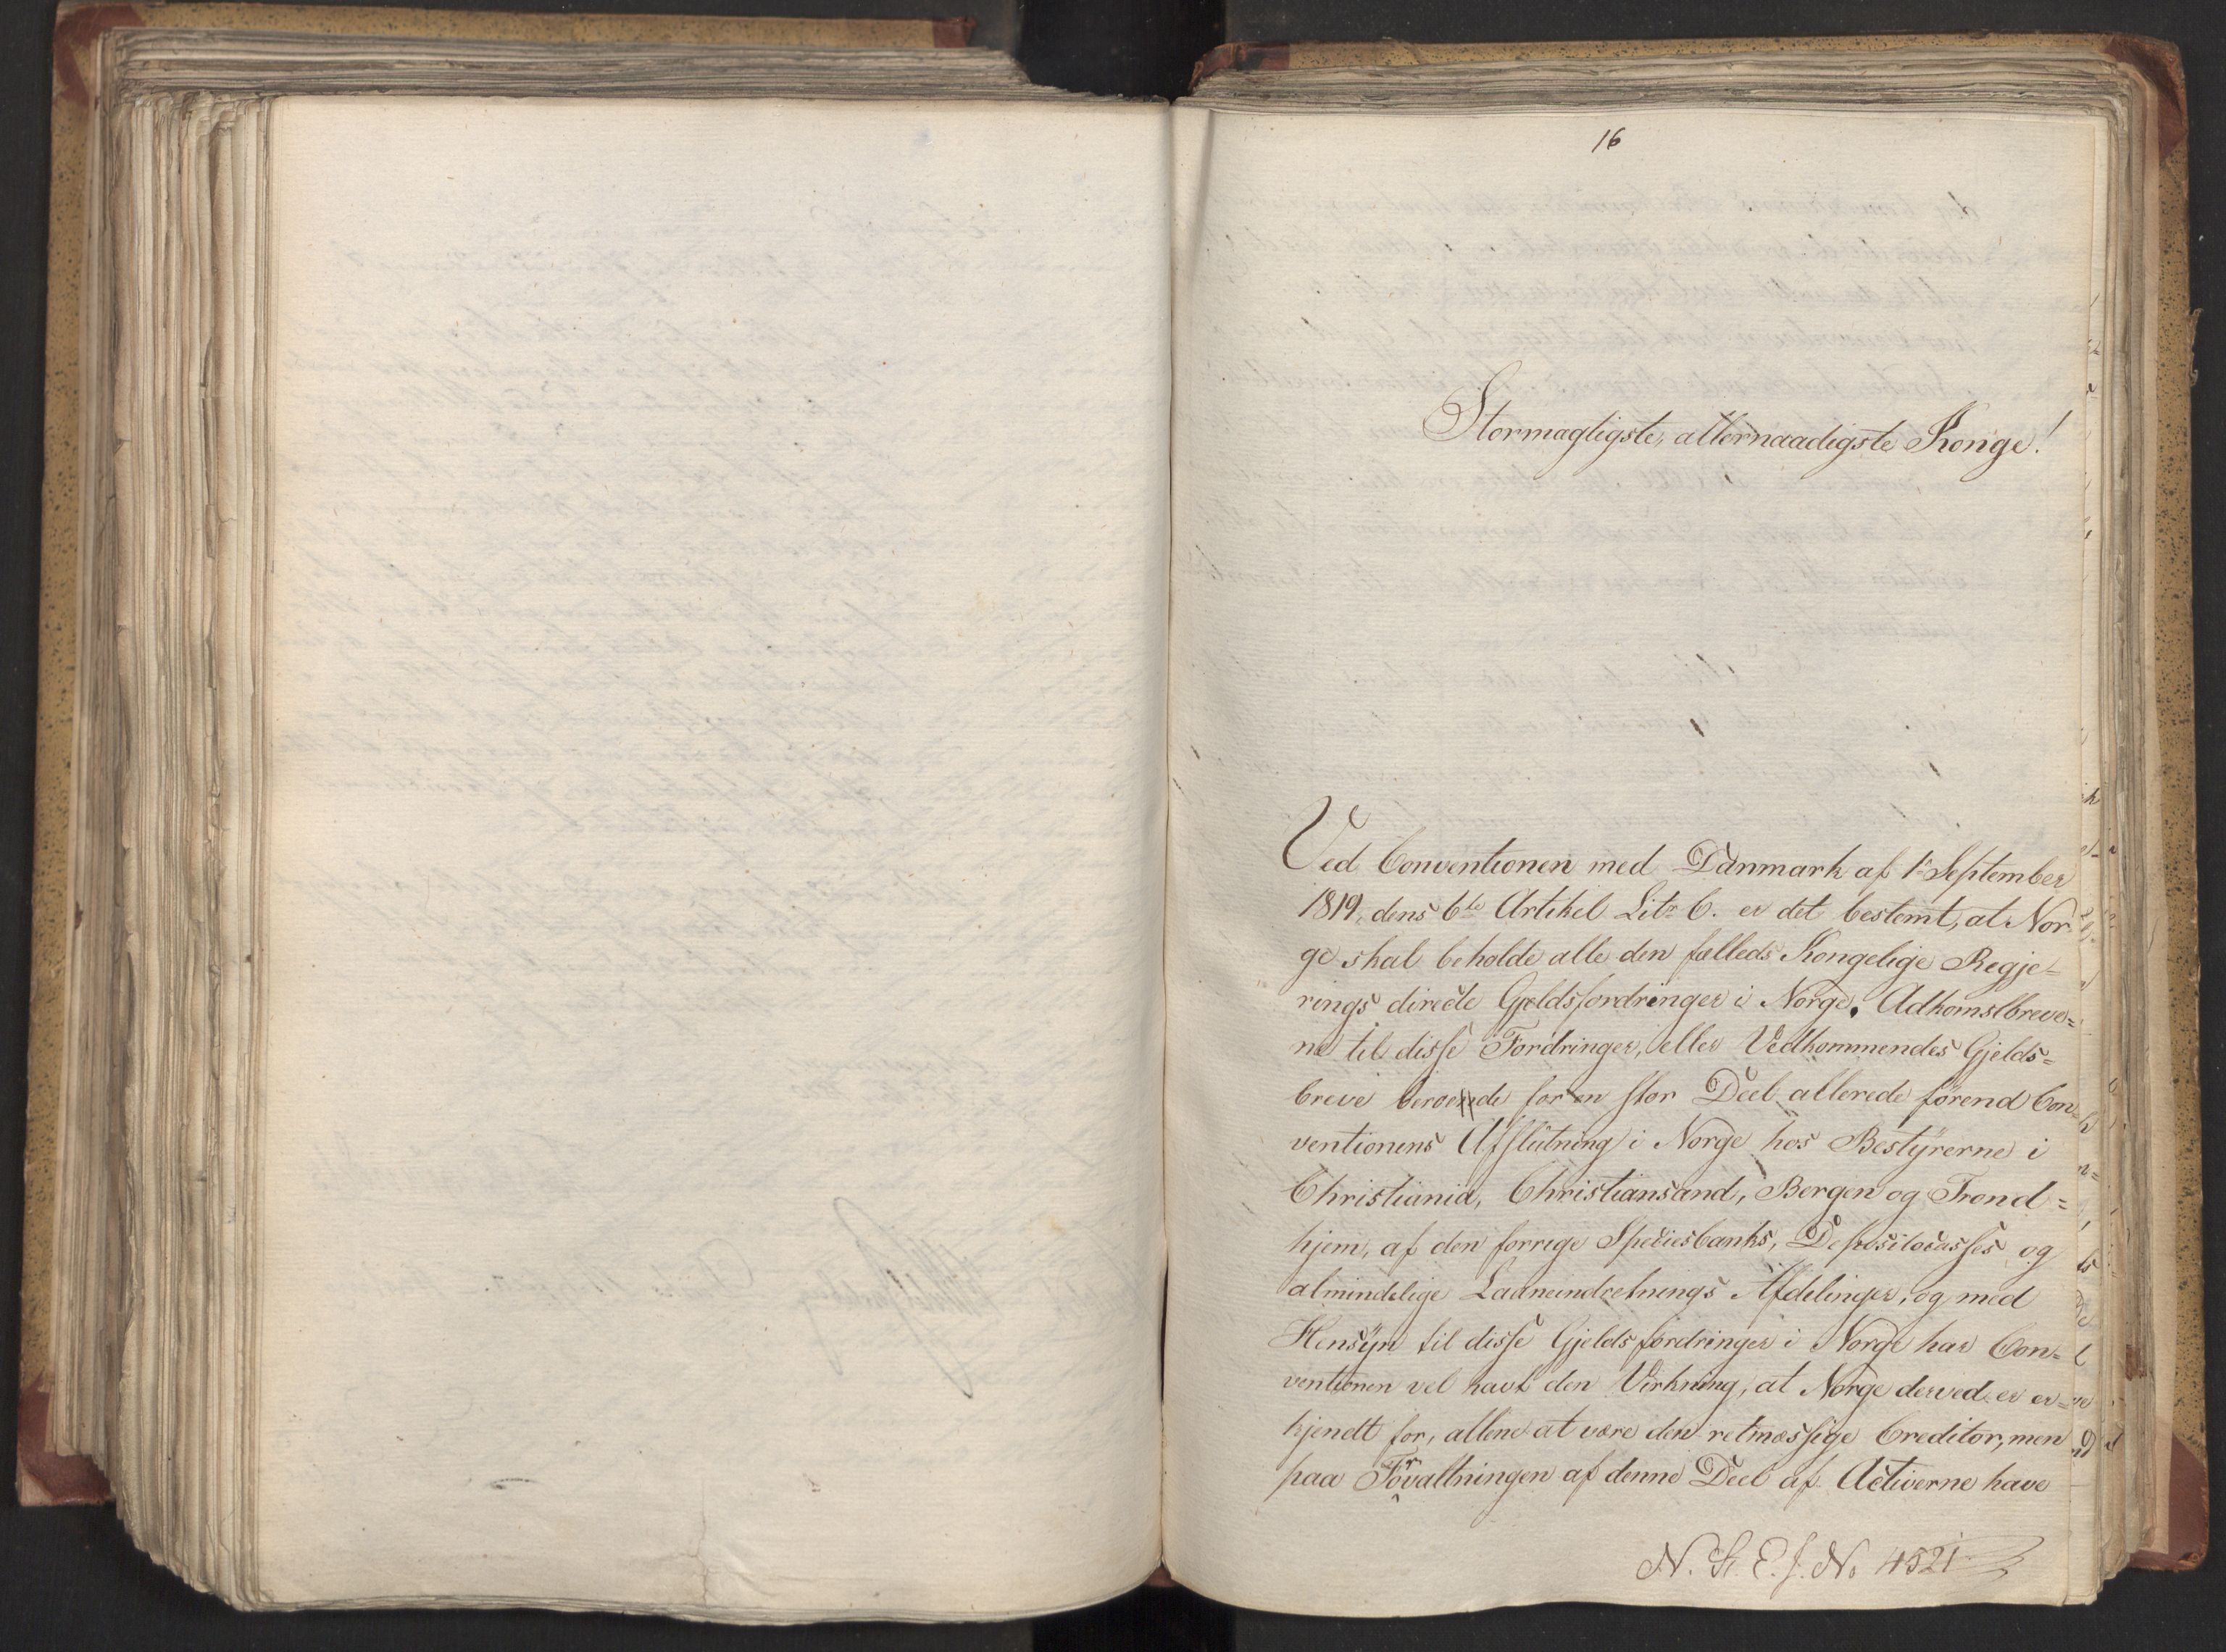 16
Stormagtigste, allernaadigste Konge!
Ved Conventionen med Danmark af 1ᵉ September
1819, dens 6te Artikel Litr C. er det bestemt, at Nor-
ge skal beholde alle den fælleds Kongelige Regje-
rings directe Gjeldsfordringer i Norge. Adkomstbreve-
ne til disse Fordringer, eller Vedkommendes Gjelds-
breve beroede for en stor Deel allerede førend Con-
ventionens Afslutning i Norge hos Bestyrerne i
Christiania, Christiansand, Bergen og Trond-
hjem, af den forrige Speciesbanks, Depositocasses og
almindelige Laaneindretnings Afdelinger, og med
Hensyn til disse Gjeldsfordringer i Norge har Con-
ventionen vel havt den Virkning, at Norge derved er er-
kjendt for, allene at være den retmæssige Creditor, men
paa Forvaltningen af denne Deel af Activerne have
N. St. E. J. No 4521